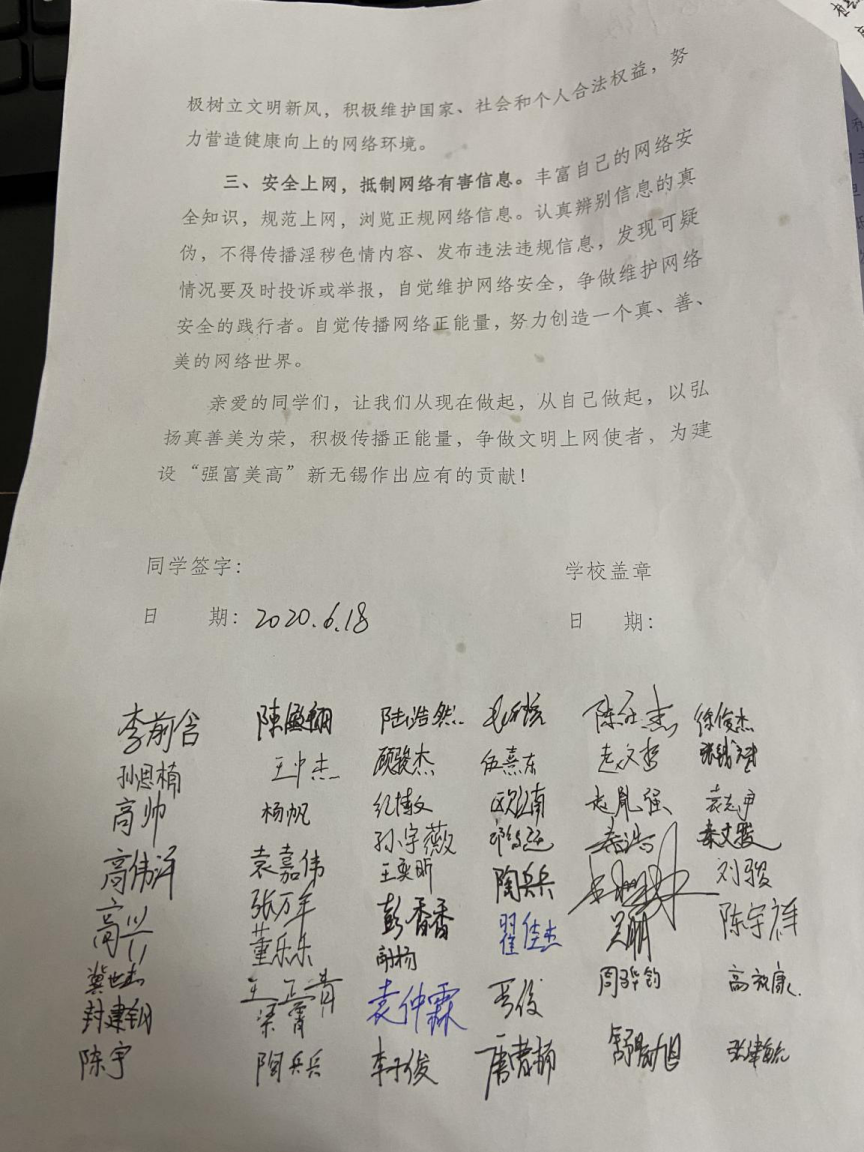 极树立文明新风，积极维护国家、社会和个人合法权益，努
力营造健康向上的网络环境。
三、安全上网，抵制网络有害信息。丰富自己的网络安
全知识，规范上网，浏览正规网络信息。认真辨别信息的真
伪，不得传播淫秽色情内容、发布违法违规信息，发现可疑
情况要及时投诉或举报，自觉维护网络安全，争做维护网络
安全的践行者。自觉传播网络正能量，努力创造一个真、善、
美的网络世界。
亲爱的同学们，让我们从现在做起，从自己做起，以弘
扬真善美为荣，积极传播正能量，争做文明上网使者，为建
设“强富美高”新无锡作出应有的贡献！
同学签字： 学校盖章
日 期：2020.6.18 日 期：
李前含 陆浩然 徐俊杰
孙恩楠 王中杰 顾骏杰 伍熹东 赵文哲
高帅 杨帆 纪博文 赵胤强
孙宇薇 秦浩 秦文骏
高伟洋 袁嘉伟 王奕昕 陶兵兵 刘骏
高兴 张万年 彭香香 翟佳杰 吴丽 陈宇祥
董乐乐
龚世杰 王正青 晋俊 周骅钧
封建钢 梁霄 袁仲霖
陈宇 陶兵兵 李子俊 唐君扬